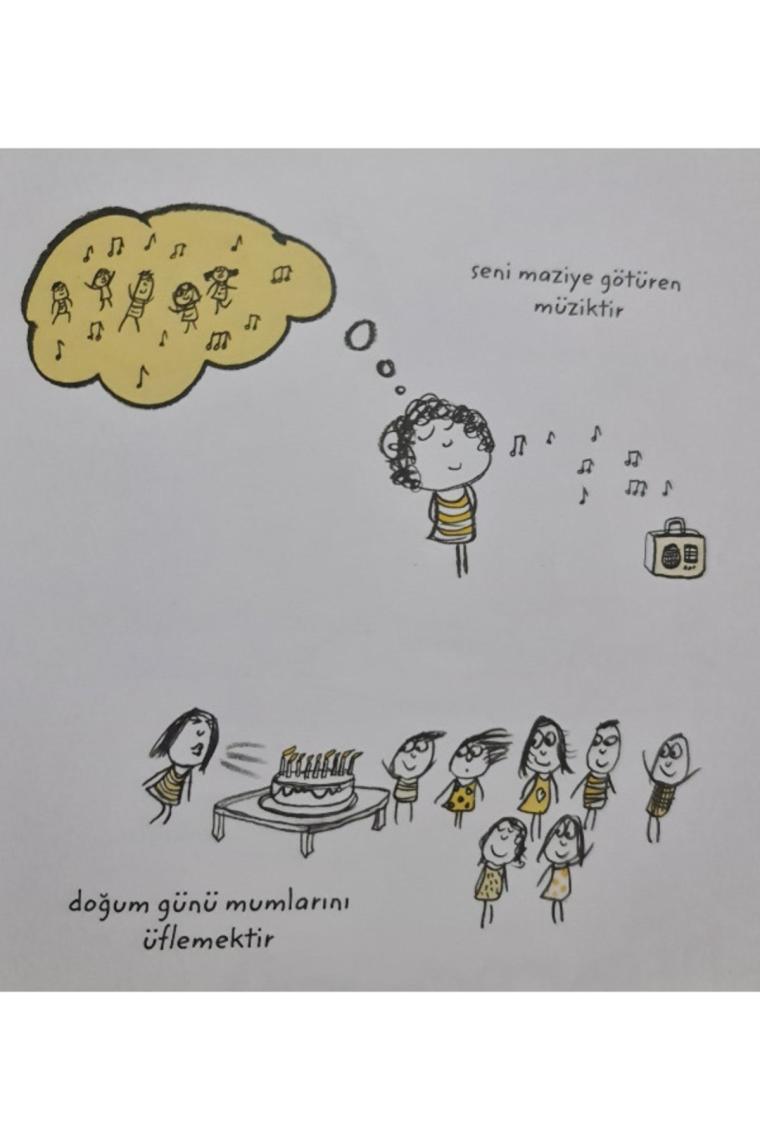 seni maziye götüren
müziktir
doğum günü mumlarını
üflemektir